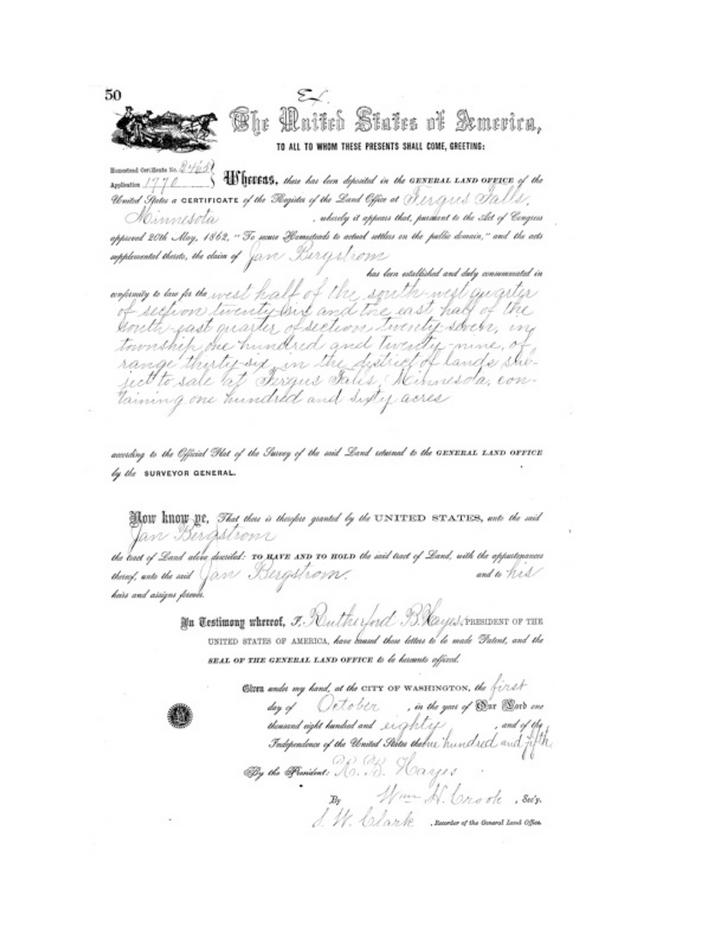 50
Ex.
The United States of America,
TO ALL TO WHOM THESE PRESENTS SHALL COME, GREETING:
Homestead Certificate No. 2465
Application 1770
Whereas, there has been deposited in the GENERAL LAND OFFICE of the
United States a CERTIFICATE of the Register of the Land Office at Fergus Falls,
Minnesota, whereby it appears that, pursuant to the Act of Congress
approved 20th May, 1862, "To secure Homesteads to actual settlers on the public domain," and the acts
supplemental thereto, the claim of Jan Bergstrom
has been established and duly consummated in
conformity to law for the west half of the south-west quarter
of section twenty-six and the east half of the
south-east quarter of section twenty-seven, in
township one hundred and twenty-nine, of
range thirty-six, in the district of lands sub-
ject to sale at Fergus Falls, Minnesota, con-
taining one hundred and sixty acres
according to the Official Plat of the Survey of the said Land returned to the GENERAL LAND OFFICE
by the SURVEYOR GENERAL.
Now know ye, That there is therefore granted by the UNITED STATES, unto the said
Jan Bergstrom
the tract of Land above described: TO HAVE AND TO HOLD the said tract of Land, with the appurtenances
thereof, unto the said Jan Bergstrom. and to his
heirs and assigns forever.
In Testimony whereof, I, Rutherford B. Hayes, PRESIDENT OF THE
UNITED STATES OF AMERICA, have caused these letters to be made Patent, and the
SEAL OF THE GENERAL LAND OFFICE to be hereunto affixed.
Given under my hand, at the CITY OF WASHINGTON, the first
day of October, in the year of Our Lord one
thousand eight hundred and eighty, and of the
Independence of the United States the one hundred and fifth
By the President: R. B. Hayes
By Wm H. Crook, Sec'y.
S. W. Clark, Recorder of the General Land Office.